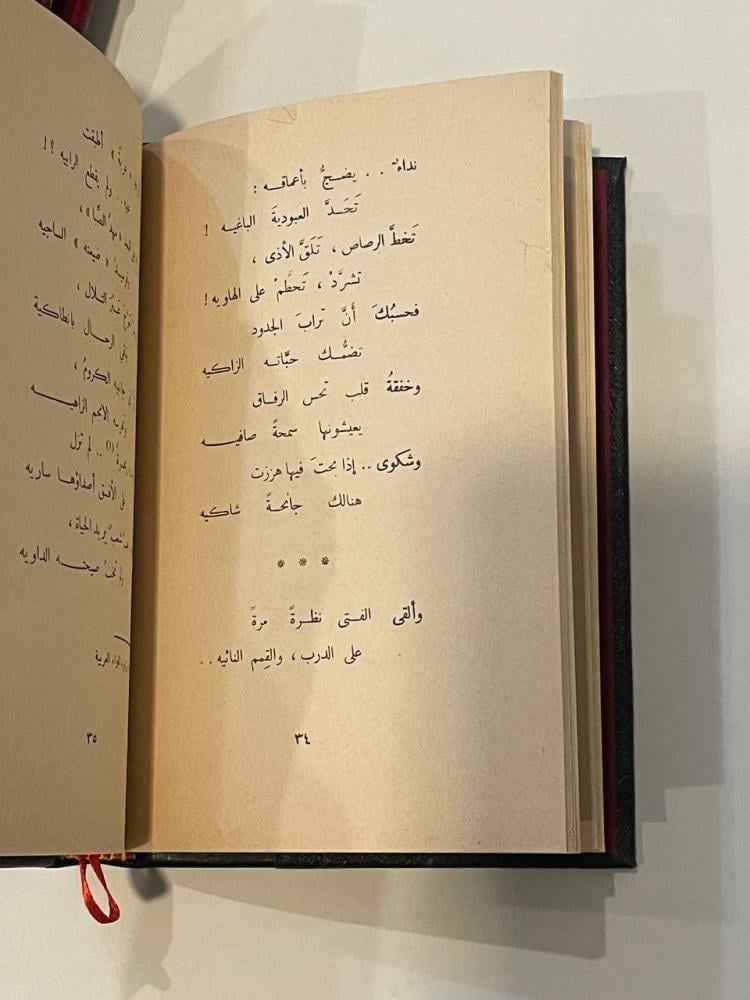 نداءٌ . . يضجُّ بأعماقه :
تَحَدَّ العبوديةَ الباغيه !
تَخطَّ الرصاص ، تَلَقَّ الأذى ،
تشرَّدْ ، تَحطَّمْ على الهاويه !
فحسبُكَ أنَّ ترابَ الجدود
تضمُّك حبَّاته الزاكيه
وخفقةُ قلب تحس الرفاق
يعيشونها سمحةً صافيه
وشكوى .. إذا بحتَ فيها هززت
هنالك جانحةً شاكيه
* * *
وألقى الفتى نظرةً مرةً
على الدرب ، والقِمم النائيه ..
٣٤
أطبقت
ولم يقطع الرابيه ؟!
« ضيعته » الساجيه
التلال ،
الرحال بانطاكية
الكرومُ ،
الانجم الزاهيه
(١) .. لم تزل
الأفق أصداؤها ساريه
يريد الحياة ،
صيحته الداويه
العربية
٣٥